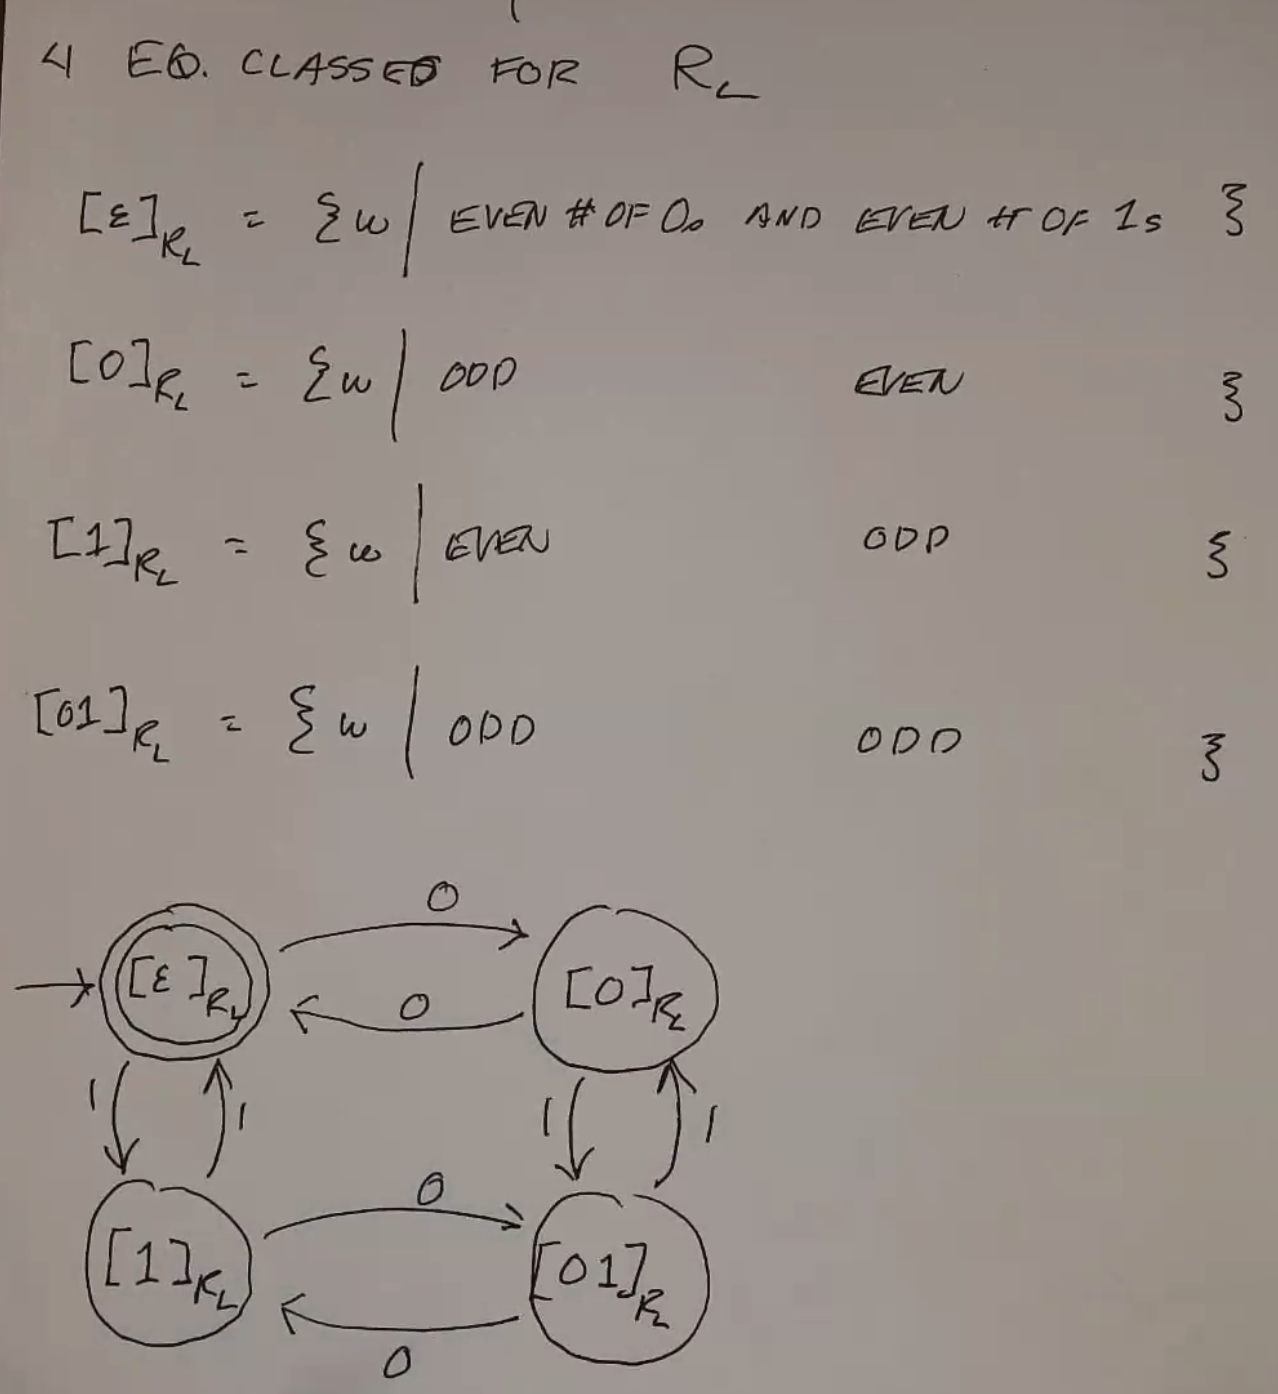 4 EQ. CLASSES FOR R_L
[ε]_RL = {w | EVEN # OF 0s AND EVEN # OF 1s }
[0]_RL = {w | ODD EVEN }
[1]_RL = {w | EVEN ODD }
[01]_RL = {w | ODD ODD }
0
[ε]_RL [0]_RL
0
1 1 1 1
0
[1]_RL [01]_RL
0